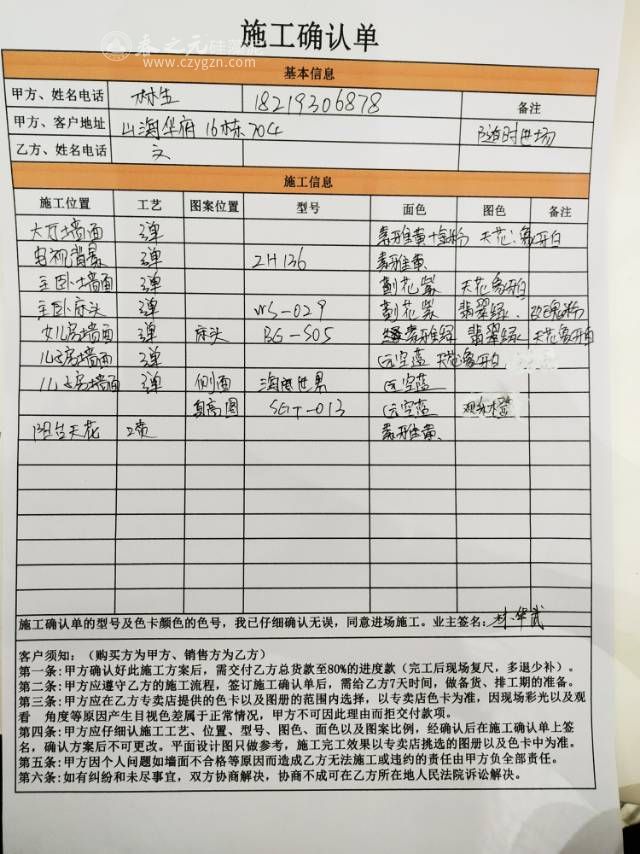 施工确认单
春之元硅藻泥
www.czygzn.com
基本信息
甲方、姓名电话 林生 18219306878 备注
甲方、客户地址 山海华府 16栋704 随时进场
乙方、姓名电话 文
施工信息
施工位置 工艺 图案位置 型号 面色 图色 备注
大厅墙面 弹 素雅黄+金粉 天花:象牙白
电视背景 弹 ZH136 素雅黄
主卧墙面 弹 天花象牙白
主卧床头 弹 WS-029 翡翠绿、玫瑰粉
女儿房墙面 弹 床头 BG-S05 素雅绿 翡翠绿 天花象牙白
儿子房墙面 弹 远空蓝 天花象牙白
儿子房墙面 弹 侧面 海底世界 远空蓝
身高图 SGT-013 远空蓝
阳台天花 素雅黄
施工确认单的型号及色卡颜色的色号，我已仔细确认无误，同意进场施工。业主签名: 林华武
客户须知：（购买方为甲方、销售方为乙方）
第一条：甲方确认好此施工方案后，需交付乙方总货款至80%的进度款（完工后现场复尺，多退少补）。
第二条：甲方应遵守乙方的施工流程，签订施工确认单后，需给乙方7天时间，做备货、排工期的准备。
第三条：甲方应在乙方专卖店提供的色卡以及图册的范围内选择，以专卖店色卡为准，因现场彩光以及观
看 角度等原因产生目视色差属于正常情况，甲方不可因此理由而拒交付款项。
第四条：甲方应仔细认施工工艺、位置、型号、图色、面色以及图案比例，经确认后在施工确认单上签
名，确认方案后不可更改。平面设计图只做参考，施工完工效果以专卖店挑选的图册以及色卡中为准。
第五条：甲方因个人问题如墙面不合格等原因而造成乙方无法施工或违约的责任由甲方负全部责任。
第六条：如有纠纷和未尽事宜，双方协商解决，协商不成可在乙方所在地人民法院诉讼解决。